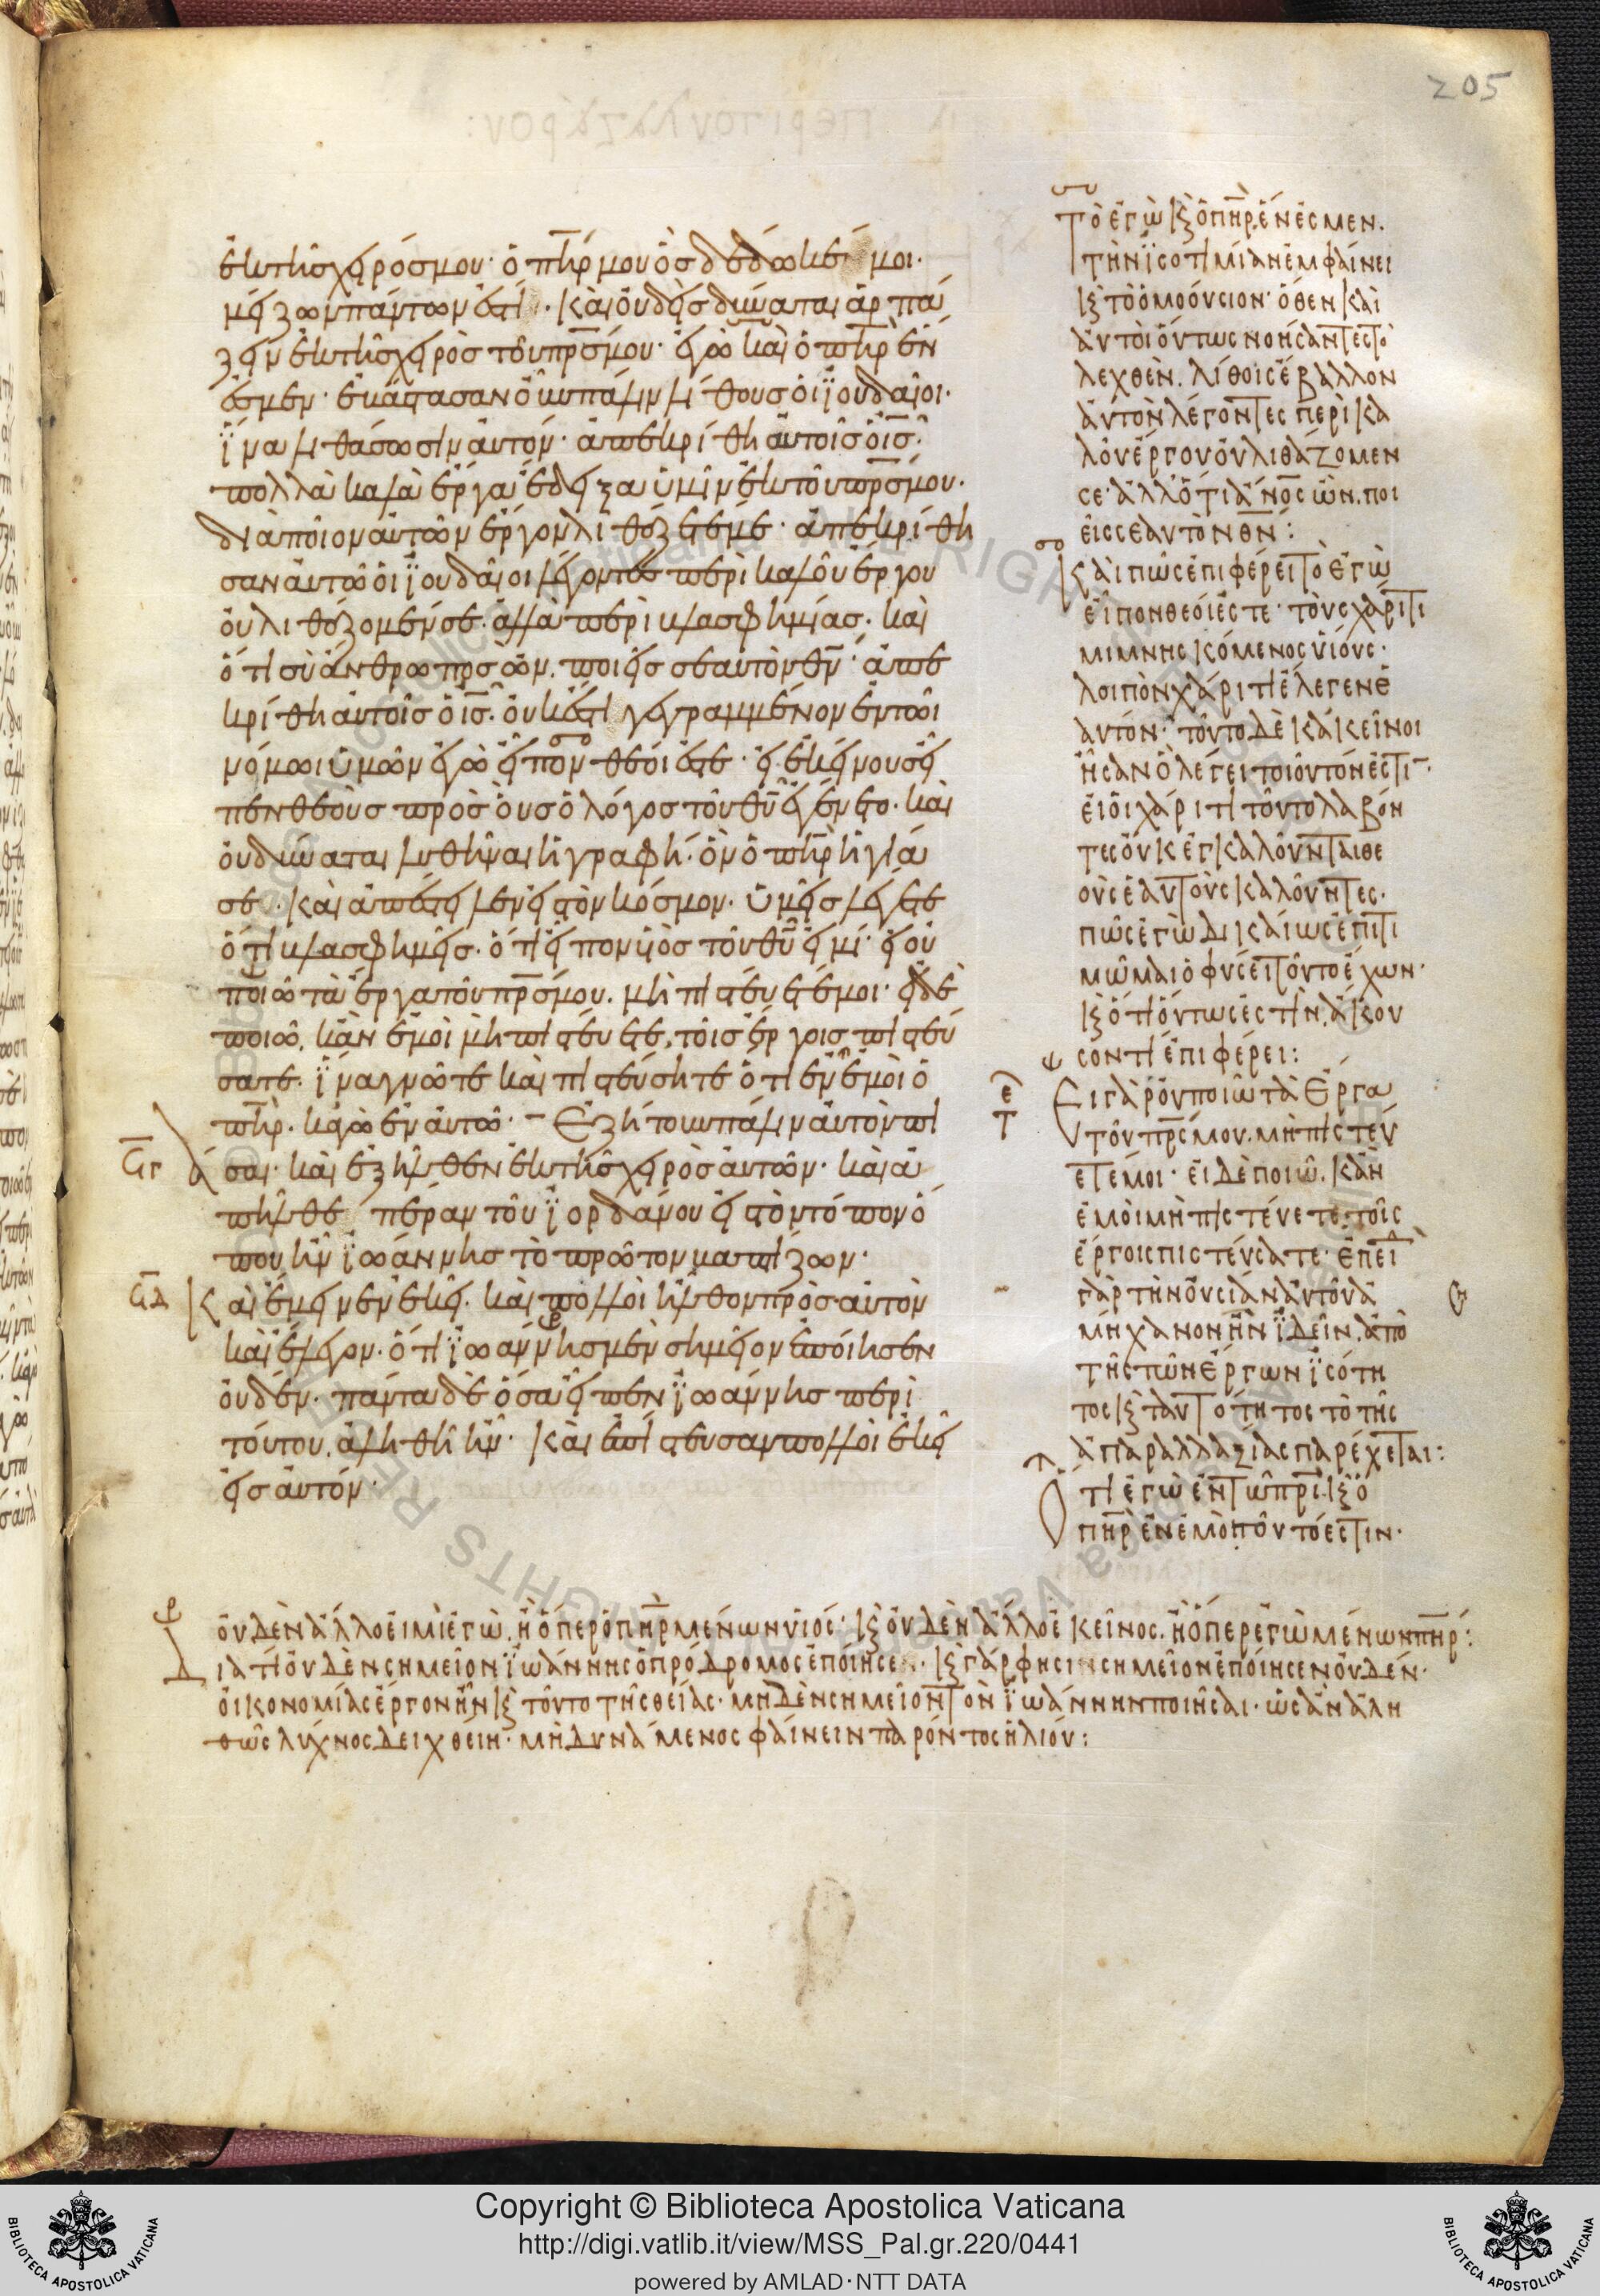 205
ἐκ τῆς χειρός μου· ὁ πηρ μου ὃς δέδωκέ μοι·
μείζων πάντων ἐστί· καὶ οὐδεὶς δύναται ἁρπά
ζειν ἐκ τῆς χειρὸς τοῦ πρσ μου· ἐγὼ καὶ ὁ πηρ ἕν
ἐσμεν· ἐβάστασαν οὖν πάλιν λίθους οἱ ϊουδαῖοι·
ἵνα λιθάσωσιν αὐτόν· ἀπεκρίθη αὐτοῖς ὁ ισ·
πολλὰ καλὰ ἔργα ἔδειξα ὑμῖν ἐκ τοῦ πρσ μου·
διὰ ποῖον αὐτῶν ἔργον λιθάζετέ με· ἀπεκρίθη
σαν αὐτῶ οἱ ϊουδαῖοι λέγοντες περὶ καλοῦ ἔργου
οὐ λιθάζομέν σε· ἀλλὰ περὶ βλασφημίας· καὶ
ὅτι σὺ ἄνθρωπος ὢν, ποιεῖς σεαυτὸν θν· ἀπε
κρίθη αὐτοῖς ὁ ισ· οὐκ ἔστι γεγραμμένον ἐν τῶι
νόμωι ὑμῶν ἐγὼ εἶπον θεοί ἐστε· εἰ ἐκείνους εἶ
πεν θεοὺς πρὸς οὓς ὁ λόγος τοῦ θυ ἐγένετο· καὶ
οὐ δύναται λυθῆναι ἡ γραφή· ὃν ὁ πηρ ἡγία
σε· καὶ ἀπέστειλεν εἰς τὸν κόσμον· ὑμεῖς λέγετε
ὅτι βλασφημεῖς· ὅτι εἶπον υἱὸς τοῦ θυ εἰμί· εἰ οὐ
ποιῶ τὰ ἔργα τοῦ πρσ μου· μὴ πιστεύετέ μοι· εἰ δὲ
ποιῶ, κἂν ἐμοὶ μὴ πιστεύετε, τοῖς ἔργοις πιστεύ
σατε· ἵνα γνῶτε καὶ πιστεύσητε ὅτι ἐν ἐμοὶ ὁ
πηρ· κἀγὼ ἐν αὐτῶ· Ἐζήτουν πάλιν αὐτὸν πι
άσαι· καὶ ἐξῆλθεν ἐκ τῆς χειρὸς αὐτῶν· καὶ ἀ
πῆλθε πέραν τοῦ ϊορδάνου εἰς τὸν τόπον ὅ
που ἦν ϊωάννης τὸ πρῶτον βαπτίζων·
Καὶ ἔμεινεν ἐκεῖ· καὶ πολλοὶ ἦλθον πρὸς αὐτὸν
καὶ ἔλεγον· ὅτι ϊωάννης μὲν σημεῖον ἐποίησεν
οὐδέν· πάντα δὲ ὅσα εἶπεν ϊωάννης περὶ
τούτου, ἀληθῆ ἦν· Καὶ ἐπίστευσαν πολλοὶ ἐκεῖ
εἰς αὐτόν·
Τὸ ἐγὼ κ ὁ πηρ, ἕν ἐσμεν·
τὴν ϊσοτιμίαν ἐμφαίνει
κ τὸ ὁμοούσιον· ὅθεν καὶ
αὐτοὶ οὕτως νοήσαντες τὸ
λεχθὲν, λίθοις ἔβαλλον
αὐτὸν λέγοντες περὶ κα
λοῦ ἔργου οὐ λιθάζομεν
σε· ἀλλ' ὅτι ανος ὢν, ποι
εῖς σεαυτὸν θν:
Καὶ πῶς ἐπιφέρει τὸ ἐγὼ
εἶπον θεοί ἐστε· τοὺς χάριτι
μιμνησκόμενος υἱούς·
λοιπὸν χάριτι ἔλεγεν ἑ
αυτόν· τοῦτο δὲ κἀκεῖνοι
ἦσαν· ὃ λέγει τοιοῦτόν ἐστι·
εἰ οἱ χάριτι τοῦτο λαβόν
τες οὐκ ἐγκαλοῦνται θε
οὺς ἑαυτοὺς καλοῦντες·
πῶς ἐγὼ δικαίως ἐπιτι
μῶμαι ὁ φύσει τοῦτο ἔχων·
κ ὅτι οὕτως ἐστὶν, ἄκου
σον τί ἐπιφέρει:
Εἰ γὰρ οὐ ποιῶ τὰ ἔργα
τοῦ πρς μου, μὴ πιστεύ
ετέ μοι· εἰ δὲ ποιῶ, κἂν
ἐμοὶ μὴ πιστεύετε, τοῖς
ἔργοις πιστεύσατε· ἐπεὶ
γὰρ τὴν οὐσίαν αὐτοῦ ἀ
μήχανον ἦν ϊδεῖν, ἀπὸ
τῆς τῶν ἔργων ϊσότη
τος κ ταυτότητος τὸ τῆς
ἀπαραλλαξίας παρέχεται:
Ὅτι ἐγὼ ἐν τῶ πρι, κ ὁ
πηρ ἐν ἐμοὶ τοῦτό ἐστιν·
οὐδὲν ἄλλο εἰμὶ ἐγὼ, ἢ ὅπερ ὁ πηρ μένων υἱός· κ οὐδὲν ἄλλο ἐκεῖνος, ἢ ὅπερ ἐγὼ μένων πηρ:
Διατί οὐδὲν σημεῖον ϊωάννης ὁ πρόδρομος ἐποίησε· κ γάρ φησι σημεῖον ἐποίησεν οὐδέν·
οἰκονομίας ἔργον ἦν κ τοῦτο τῆς θείας· μηδὲν σημεῖον τὸν ϊωάννην ποιῆσαι· ὡς ἂν ἀλη
θῶς λύχνος δειχθείη· μὴ δυνάμενος φαίνειν παρόντος ἡλίου:
Copyright © Biblioteca Apostolica Vaticana
http://digi.vatlib.it/view/MSS_Pal.gr.220/0441
powered by AMLAD·NTT DATA